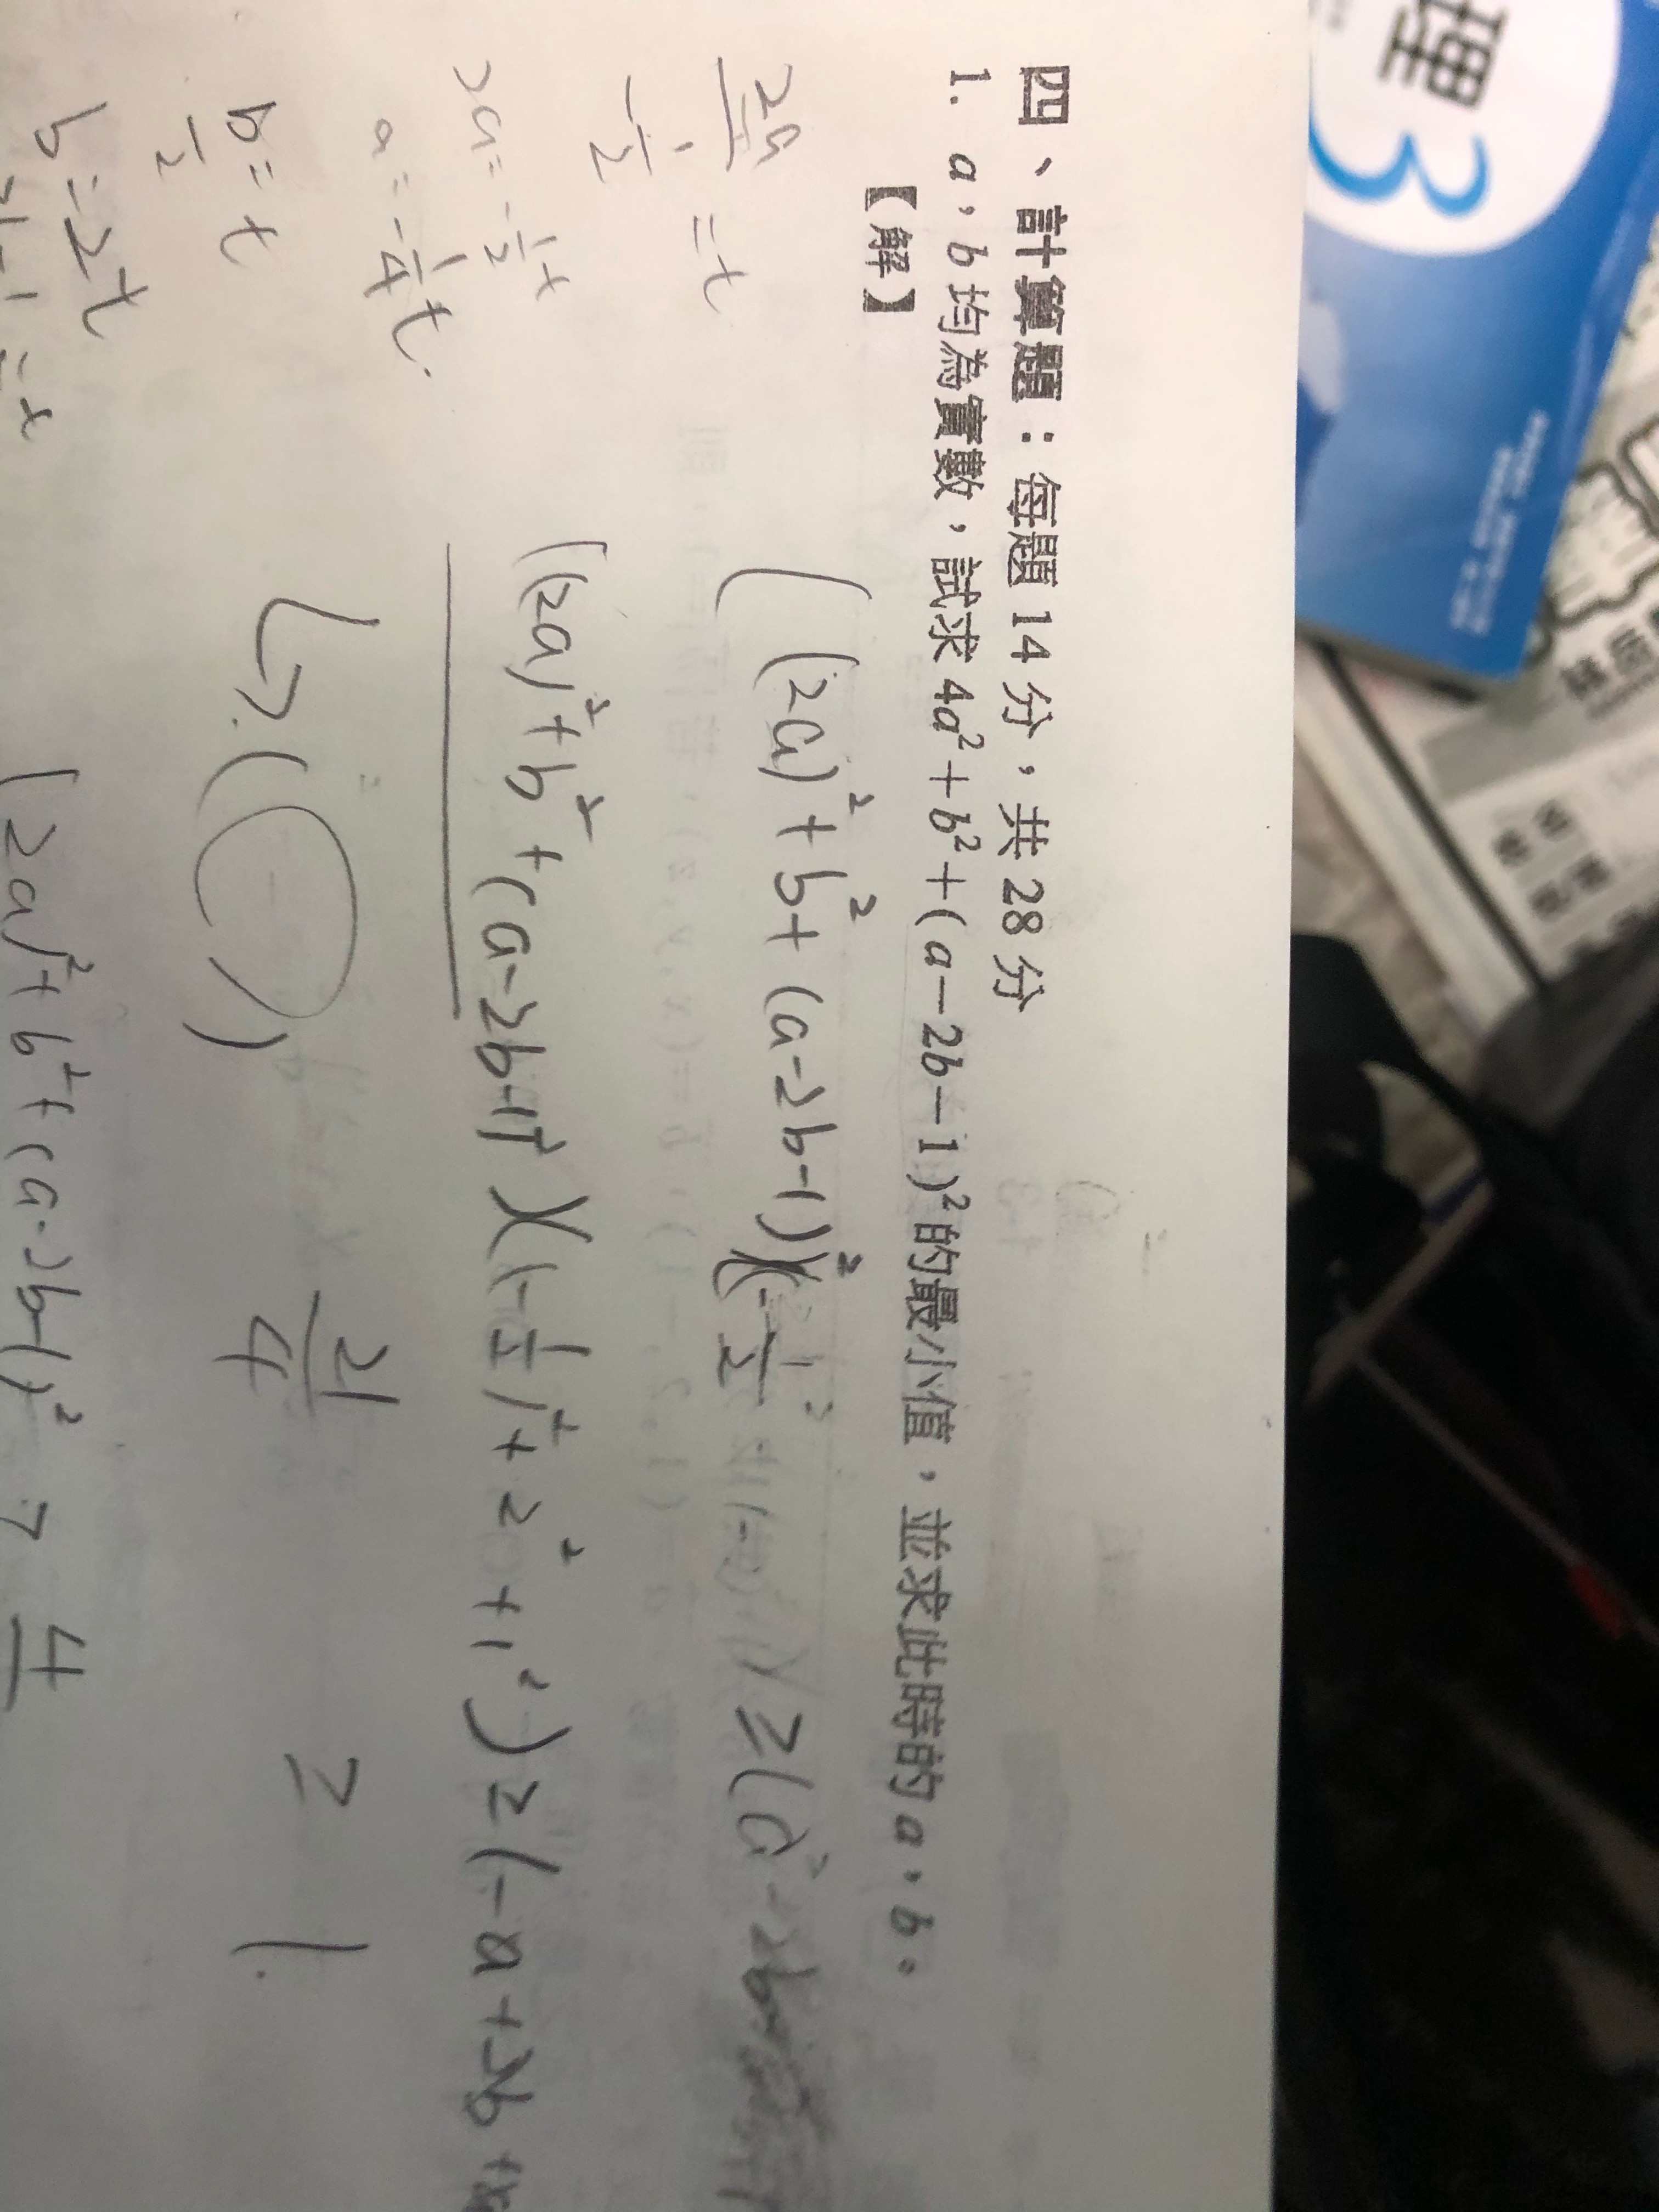 理 3
四、計算題：每題 14 分，共 28 分
1. a，b 均為實數，試求 4a²＋b²＋(a－2b－1)² 的最小值，並求此時的 a，b。
【解】
((2a)²+b²+(a-2b-1)²)(-1/2
((2a)²+b²+(a-2b-1)²)((-1/2)²+2²+1²) ≥ (-a+2b+
↳ ( ) 21/4 ≥ 1
(2a)²+b²+(a-2b-1)² ≥ 4
2a/(-1/2) = t
2a = -1/2 t
a = -1/4 t
b/2 = t
b = 2t